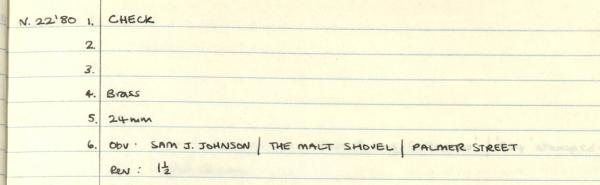 N. 22'80 1. CHECK
2.
3.
4. Brass
5. 24mm
6. Obv: SAM J. JOHNSON | THE MALT SHOVEL | PALMER STREET
Rev: 1½